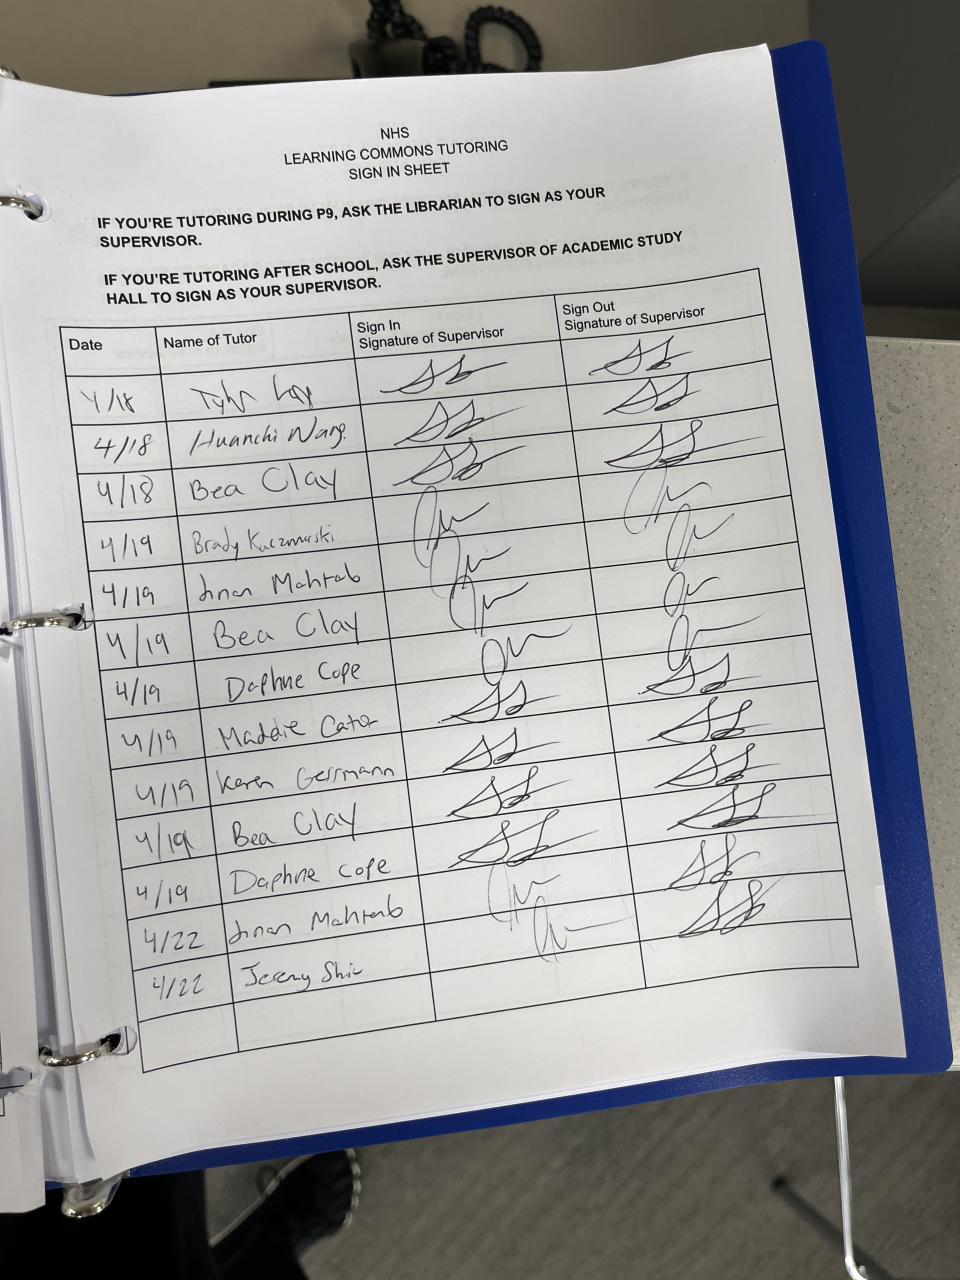 NHS
LEARNING COMMONS TUTORING
SIGN IN SHEET
IF YOU'RE TUTORING DURING P9, ASK THE LIBRARIAN TO SIGN AS YOUR
SUPERVISOR.
IF YOU'RE TUTORING AFTER SCHOOL, ASK THE SUPERVISOR OF ACADEMIC STUDY
HALL TO SIGN AS YOUR SUPERVISOR.
Date Name of Tutor Sign In Signature of Supervisor Sign Out Signature of Supervisor
4/18 Tyler
4/18 Huanchi Wang.
4/18 Bea Clay
4/19 Brady Kuczmarski
4/19 Jinan Mahtab
4/19 Bea Clay
4/19 Daphne Cope
4/19 Maddie Cator
4/19 Karen Gerrmann
4/19 Bea Clay
4/19 Daphne Cope
4/22 Jinan Mahtab
4/22 Jeremy